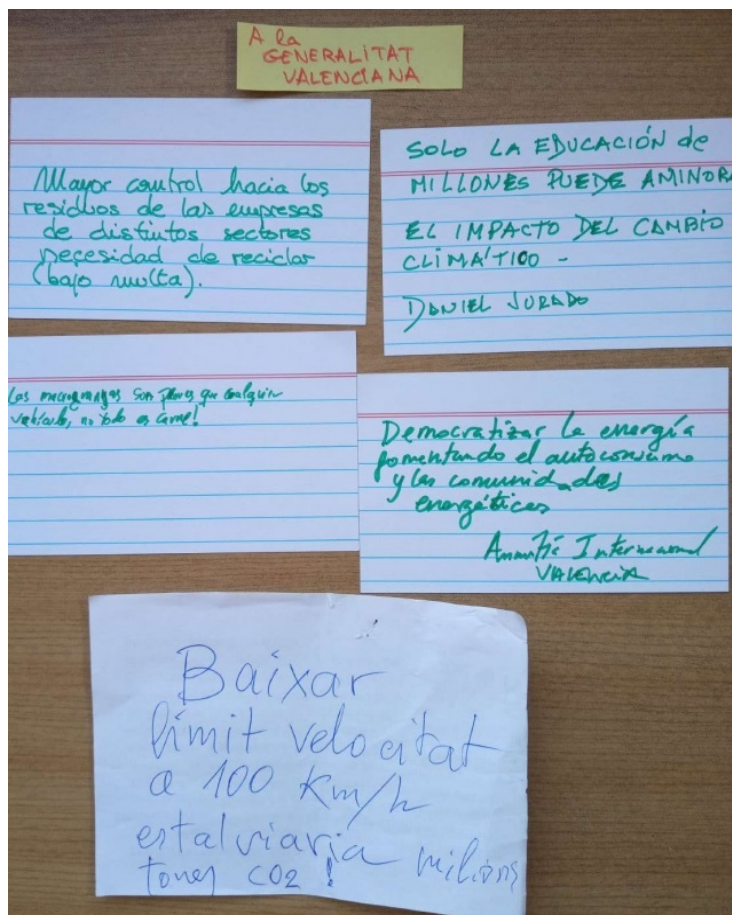 A la
GENERALITAT
VALENCIANA
Mayor control hacia los
residuos de las empresas
de distintos sectores
necesidad de reciclar
(bajo multa).
SOLO LA EDUCACIÓN de
MILLONES PUEDE AMINORA
EL IMPACTO DEL CAMBIO
CLIMÁTICO -
DANIEL JURADO
Las macrogranjas son peores que cualquier
vehículo, no todo es carne!
Democratizar la energía
fomentando el autoconsumo
y las comunidades
energéticas
Amnistía Internacional
VALENCIA
Baixar
límit velocitat
a 100 Km/h
estalviaria milions
tones CO2 !